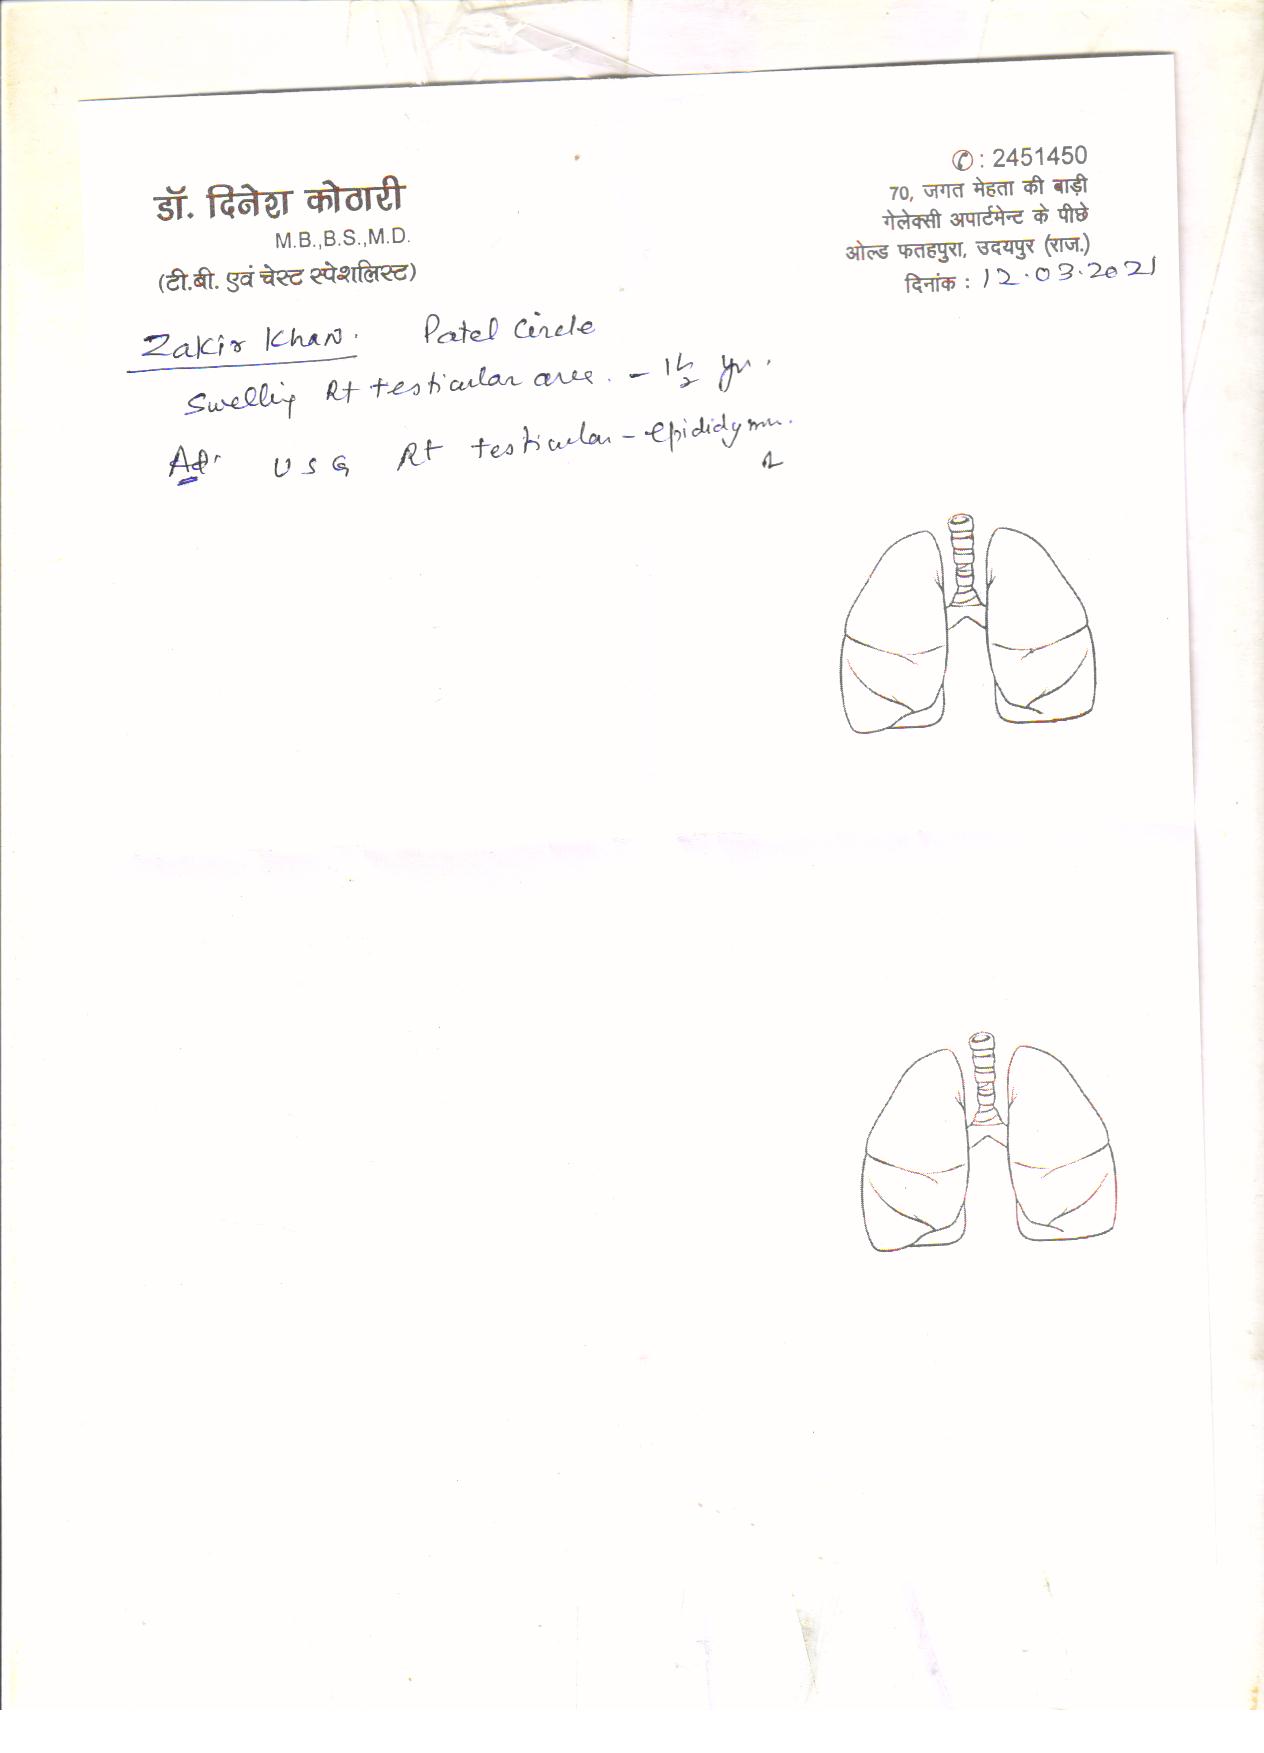 डॉ. दिनेश कोठारी
M.B.,B.S.,M.D.
(टी.बी. एवं चेस्ट स्पेशलिस्ट)
✆ : 2451450
70, जगत मेहता की बाड़ी
गेलेक्सी अपार्टमेन्ट के पीछे
ओल्ड फतहपुरा, उदयपुर (राज.)
दिनांक : 12.03.2021
Zakir Khan. Patel Circle
Swelling Rt testicular area. - 1½ yr.
USG Rt testicular - epididymis.